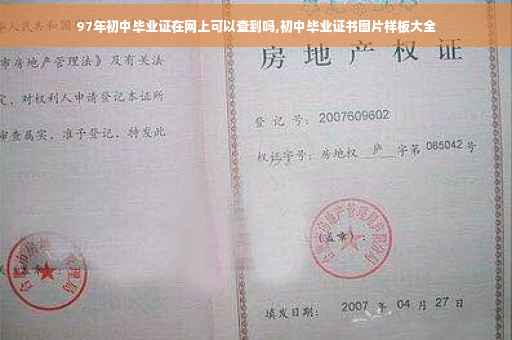 97年初中毕业证在网上可以查到吗,初中毕业证书图片样板大全
市房地产管理法》及有关法
定，对权利人申请登记本证所
审查属实，准予登记，特发此
房地产权证
登记号：2007609602
权证字号：房地权 庐 字第 065042 号
(盖章)：
填发日期：2007 年 04 月 27 日